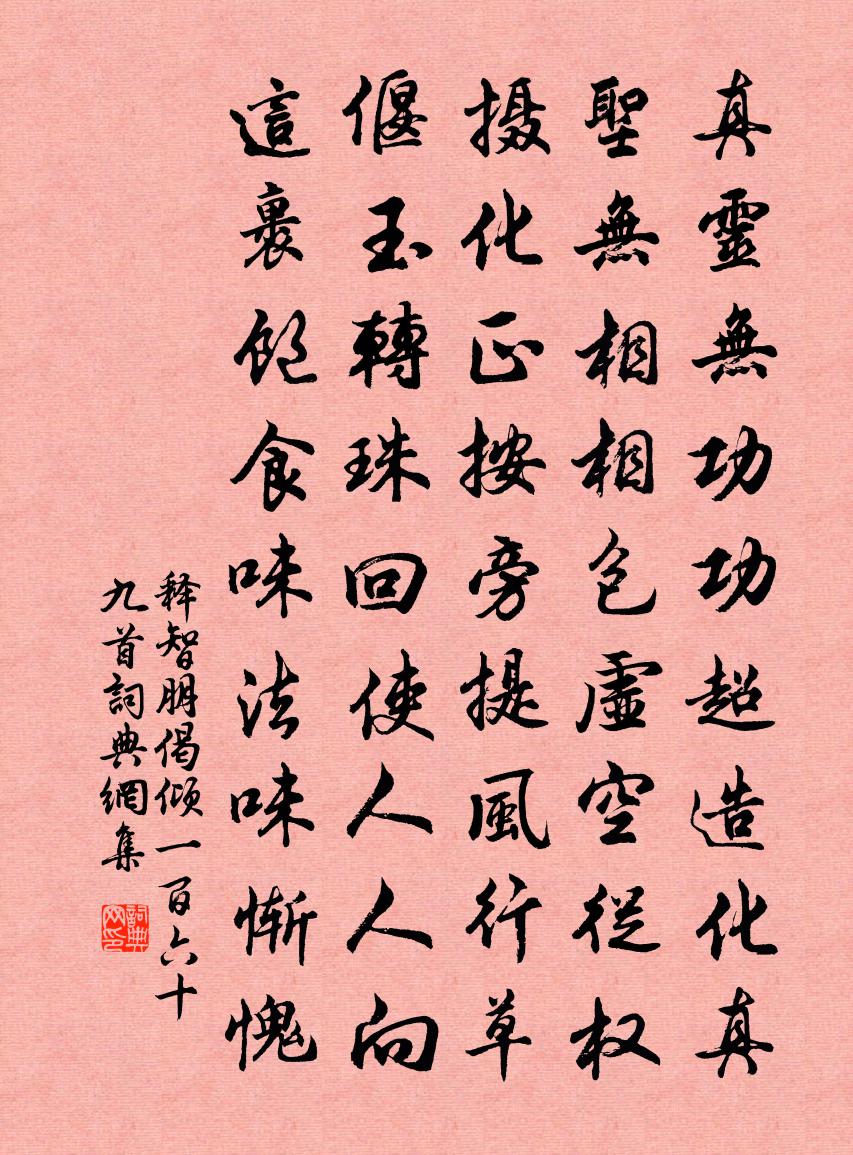 真靈無功功超造化真
聖無相相包虛空從权
摄化正按旁提風行草
偃玉轉珠回使人人向
這裏飽食味法味慚愧
释智朋偈倾一百六十
九首詞典網集
詞典网印